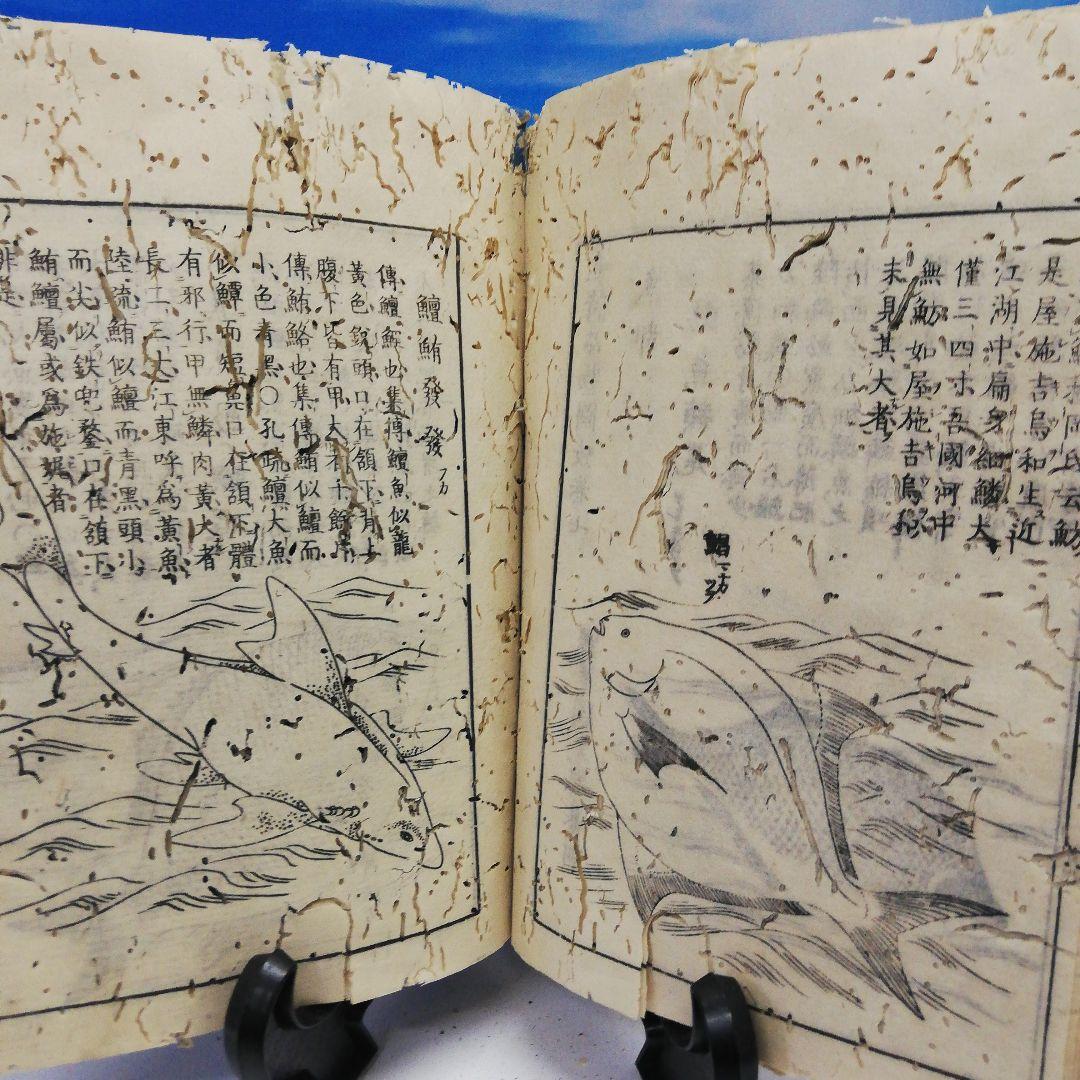 是屋施吉烏和生近
江湖中扁身細鱗大
僅三四寸吾國河中
無魴如屋施吉烏
未見其大者
鱣鮪發發
傳鱣鯉也集傳鱣魚似龍
黃色銳頭口在頷下背上
腹下皆有甲大者千餘斤
傳鮪鮥也集傳鮪似鱣而
小色青黑○孔疏鱣大魚
似鱏而短鼻口在頷下體
有邪行甲無鱗肉黃大者
長二三丈江東呼為黃魚
陸疏鮪似鱣而青黑頭小
而尖似鉄兜鍪口在頷下
鮪鱣屬或為
非是